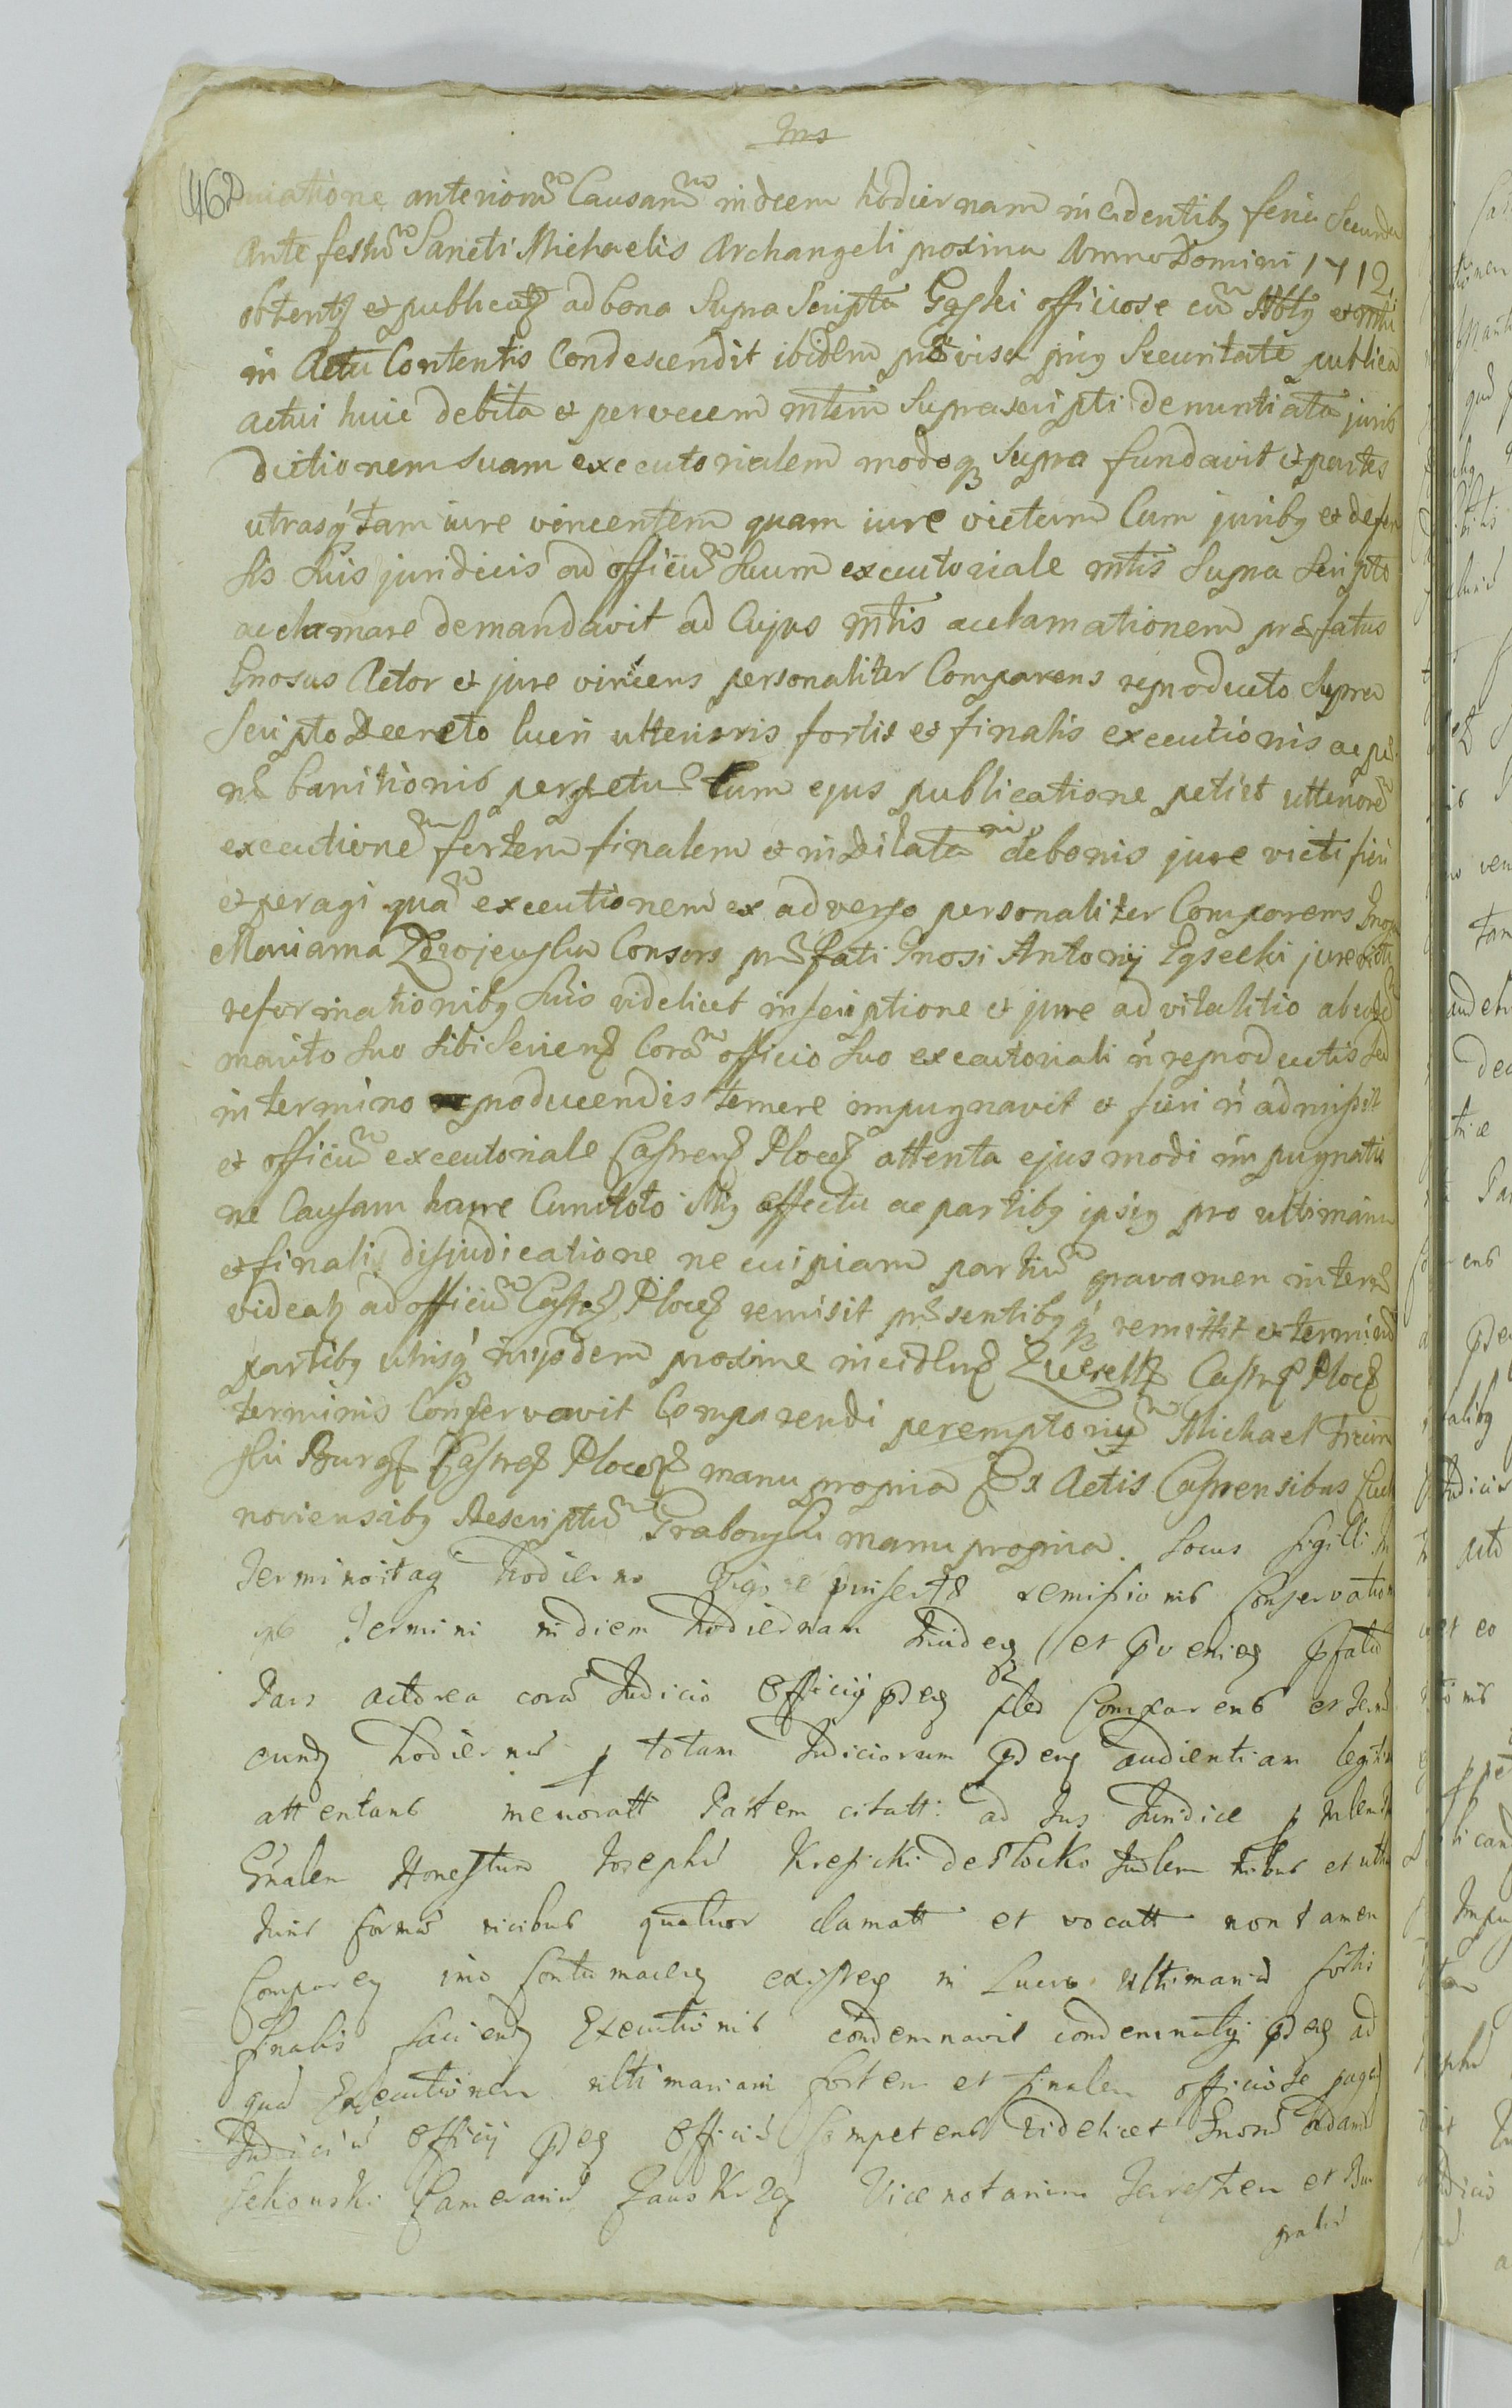 Ins
462
nuatione anteriorũ Causarũ in diem hodiernam incidentibq feria Secunda
Ante festũ Sancti Michaelis Archangeli proxima Anno Domini 1712
obtentꝭ et publicatꝭ ad bona Supra Scripta Gąski officiose cũ Nblq et mtri
in Actu Contentis Condescendit ibidem provisa prius Securitate publica
actui huic debita et per vocem mtrlem Suprascripti denuntiata juris
dictionem suam executorialem modoqꝫ Supra fundavit et partes
utrasqꝫ tam iure vincentem quam iure victam Cum juribq et defen
sis Suis juridicis ad officiũ Suum executoriale mtris Supra Scripto
acclamare demandavit ad Cujus mtris acclamationem præfatus
Gnosus Actor et jure vincens personaliter Comparens reproducto Supra
Scripto Decreto lucri ulterioris fortis et finalis executionis ac pæ
næ banitionis perpetuæ Cum ejus publicatione petiit ulteriorẽ
executionẽ fortem finalem et indilatam de bonis jure victi fieri
et peragi quã executionem ex adverso personaliter Comparens Gnosa
Marianna Zdrojewska Consors præfati Gnosi Antonij Łęsecki jure victi
reformationibq Suis videlicet inscriptione et jure advitalitio ab eodẽ
marito Suo Sibi Servienꝭ Corã officio Suo executoriali ñ reproductis Sed
in termino reproducendis temere impugnavit et fieri ñ admisit
et officiũ executoriale Castrenꝭ Plocenꝭ attenta ejusmodi impugnatio
ne Causam hanc Cum toto illiq effectu ac partibq ipsiq pro ultimaria
et finali disjudicatione ne cuipiam partiũ gravamen inferri
videatꝭ ad officiũ Castrenꝭ Plocenꝭ remisit præsentibqqꝫ remittit et terminũ
partibq utrisqꝫ in ijsdem proxime incidenꝭ Querelꝭ Castrenꝭ Plocenꝭ
terminis Conservavit Comparendi peremptoriũ Michael
ski Burgꝭ Castrenꝭ Plocenꝭ manu propria Ex Actis Castrensibus
noviensibq Rescriptũ Grabowski manu propria. Locus Sigilli In
Termino itaq hodierno vigore remissionis Conservation
Termini in diem hodiernam et pveniẽ pfata
Pars actorea corã Judicio Officij pnꝭ Comparens et term
eundꝭ hodiernũ p totam Judiciorum pnꝭ audientiam legitim
attentans Partem citatt: ad Jus Juridice p
Gñalem Honestum Josephũ Kresicki de Płocko et
Juris formã vicibus quatuor clamatt et vocatt non tamen
Comparẽ imo Contumacẽ existẽ in Lucro ultimariã fortis
finalis faciendꝭ Executionis condemnavit condemnatqꝫ pnꝭ ad
quã Executionem ultimariam fortem et finalem officiose
Judiciũ Officij pnꝭ Officiũ Competens videlicet Gnosũ Adamũ
Camerariũ Vicenotarium Terrestrem et Bur
grabiũ